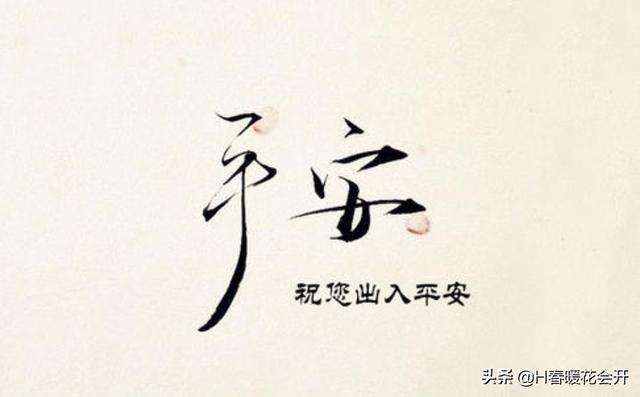 平安
祝您出入平安
头条 @H春暖花会开